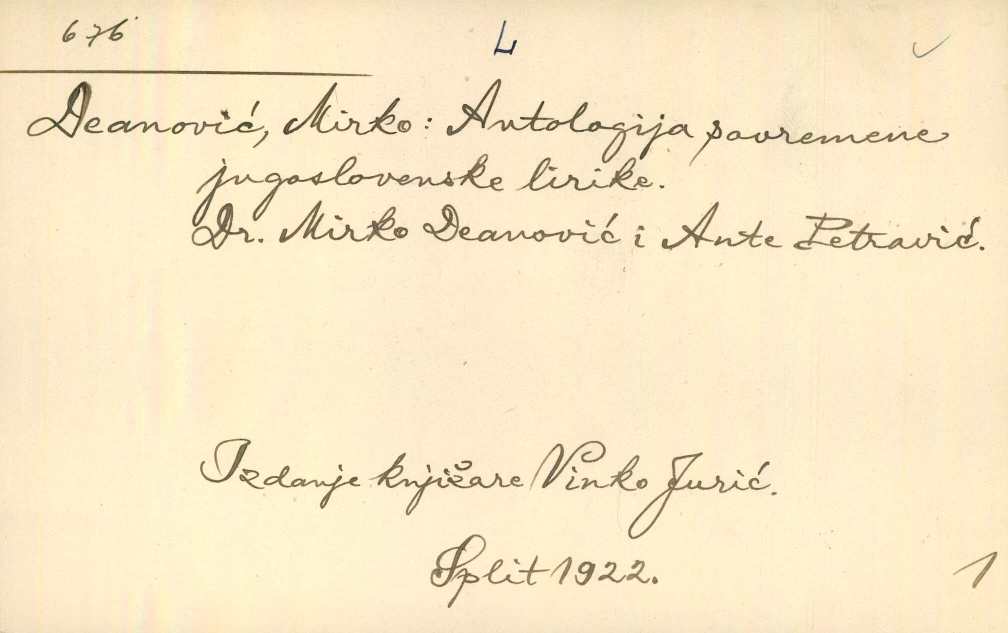 676
L
Deanović, Mirko: Antologija savremene
jugoslovenske lirike.
Dr. Mirko Deanović i Ante Petravić.
Izdanje knjižare Vinko Jurić.
Split 1922.
1